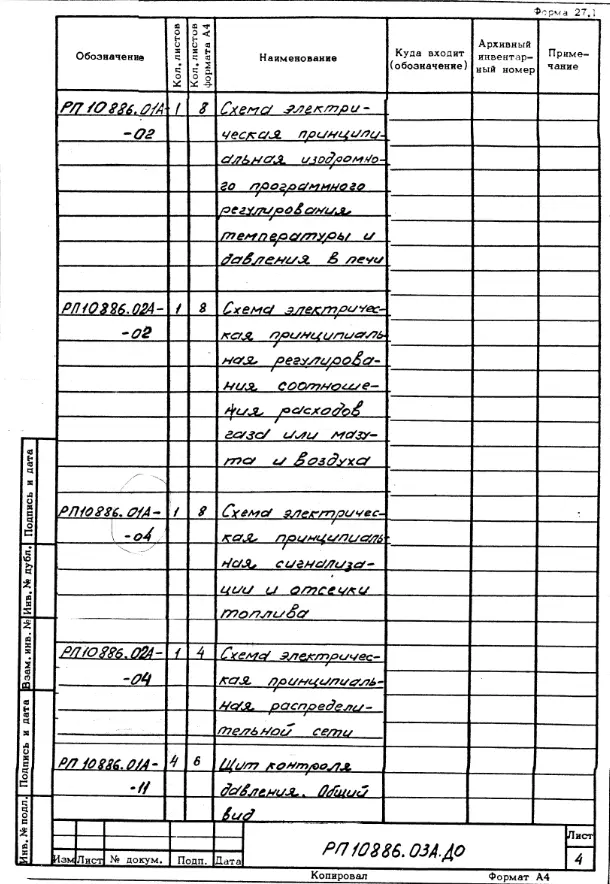 Форма 27.1
Обозначение
Кол. листов
Кол. листов формата А4
Наименование
Куда входит (обозначение)
Архивный инвентарный номер
Примечание
РП 10886.01А- 1 8 Схема электри-
-02 ческая принципи-
альная изодромно-
го программного
регулирования
температуры и
давления в печи
РП10886.02А- 1 8 Схема электричес-
-02 кая принципиаль
ная регулирова-
ния соотноше-
ния расходов
газа или мазу-
та и воздуха
РП10886.01А- 1 8 Схема электричес-
-04 кая принципиаль
ная сигнализа-
ции и отсечки
топлива
РП10886.02А- 1 4 Схема электричес-
-04 кая принципиаль-
ная распредели-
тельной сети
РП 10886.01А- 4 6 Щит контроля
-11 давления. Общий
вид
Инв. № подл.
Подпись и дата
Взам. инв. №
Инв. № дубл.
Подпись и дата
Изм Лист № докум. Подп. Дата
РП10886.03А.ДО
Лист
4
Копировал Формат А4